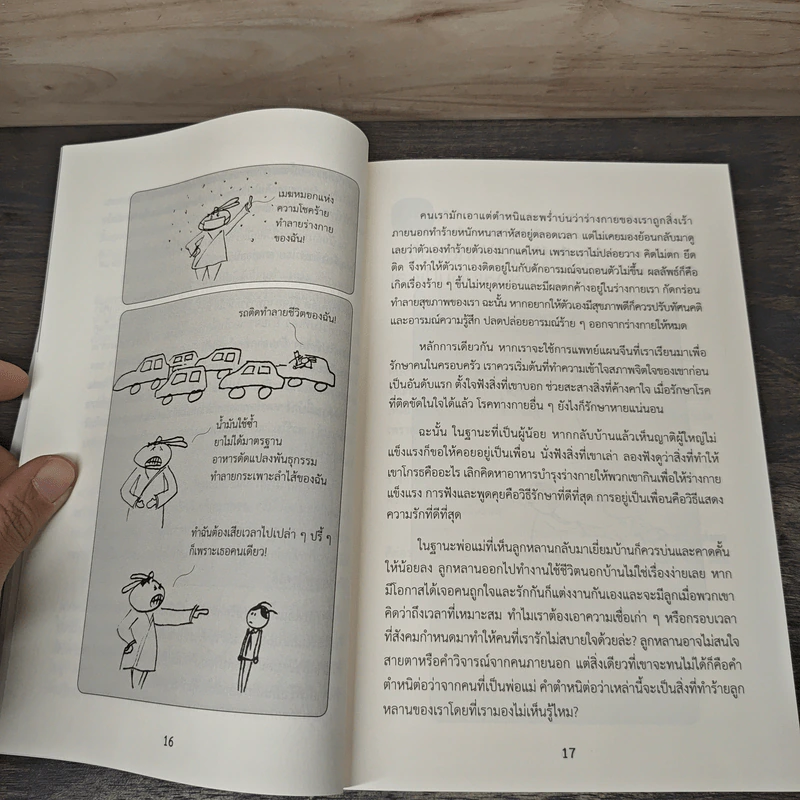 เมฆหมอกแห่ง
ความโชคร้าย
ทำลายร่างกาย
ของฉัน!
รถติดทำลายชีวิตของฉัน!
น้ำมันใช้ซ้ำ
ยาไม่ได้มาตรฐาน
อาหารตัดแปลงพันธุกรรม
ทำลายกระเพาะลำไส้ของฉัน
ทำฉันต้องเสียเวลาไปเปล่า ๆ ปรี้ ๆ
ก็เพราะเธอคนเดียว!
16
คนเรามักเอาแต่ตำหนิและพร่ำบ่นว่าร่างกายของเราถูกสิ่งเร้า
ภายนอกทำร้ายหนักหนาสาหัสอยู่ตลอดเวลา แต่ไม่เคยมองย้อนกลับมาดู
เลยว่าตัวเองทำร้ายตัวเองมากแค่ไหน เพราะเราไม่ปล่อยวาง คิดไม่ตก ยึด
ติด จึงทำให้ตัวเราเองติดอยู่ในกับดักอารมณ์จนถอนตัวไม่ขึ้น ผลลัพธ์ก็คือ
เกิดเรื่องร้าย ๆ ขึ้นไม่หยุดหย่อนและมีผลตกค้างอยู่ในร่างกายเรา กัดกร่อน
ทำลายสุขภาพของเรา ฉะนั้น หากอยากให้ตัวเองมีสุขภาพดีก็ควรปรับทัศนคติ
และอารมณ์ความรู้สึก ปลดปล่อยอารมณ์ร้าย ๆ ออกจากร่างกายให้หมด
หลักการเดียวกัน หากเราจะใช้การแพทย์แผนจีนที่เราเรียนมาเพื่อ
รักษาคนในครอบครัว เราควรเริ่มต้นที่ทำความเข้าใจสภาพจิตใจของเขาก่อน
เป็นอันดับแรก ตั้งใจฟังสิ่งที่เขาบอก ช่วยสะสางสิ่งที่ค้างคาใจ เมื่อรักษาโรค
ที่ติดขัดในใจได้แล้ว โรคทางกายอื่น ๆ ยังไงก็รักษาหายแน่นอน
ฉะนั้น ในฐานะที่เป็นผู้น้อย หากกลับบ้านแล้วเห็นญาติผู้ใหญ่ไม่
แข็งแรงก็ขอให้คอยอยู่เป็นเพื่อน นั่งฟังสิ่งที่เขาเล่า ลองฟังดูว่าสิ่งที่ทำให้
เขาโกรธคืออะไร เลิกคิดหาอาหารบำรุงร่างกายให้พวกเขากินเพื่อให้ร่างกาย
แข็งแรง การฟังและพูดคุยคือวิธีรักษาที่ดีที่สุด การอยู่เป็นเพื่อนคือวิธีแสดง
ความรักที่ดีที่สุด
ในฐานะพ่อแม่ที่เห็นลูกหลานกลับมาเยี่ยมบ้านก็ควรบ่นและคาดคั้น
ให้น้อยลง ลูกหลานออกไปทำงานใช้ชีวิตนอกบ้านไม่ใช่เรื่องง่ายเลย หาก
มีโอกาสได้เจอคนถูกใจและรักกันก็แต่งงานกันเองและจะมีลูกเมื่อพวกเขา
คิดว่าถึงเวลาที่เหมาะสม ทำไมเราต้องเอาความเชื่อเก่า ๆ หรือกรอบเวลา
ที่สังคมกำหนดมาทำให้คนที่เรารักไม่สบายใจด้วยล่ะ? ลูกหลานอาจไม่สนใจ
สายตาหรือคำวิจารณ์จากคนภายนอก แต่สิ่งเดียวที่เขาจะทนไม่ได้ก็คือคำ
ตำหนิต่อว่าจากคนที่เป็นพ่อแม่ คำตำหนิต่อว่าเหล่านี้จะเป็นสิ่งที่ทำร้ายลูก
หลานของเราโดยที่เรามองไม่เห็นรู้ไหม?
17